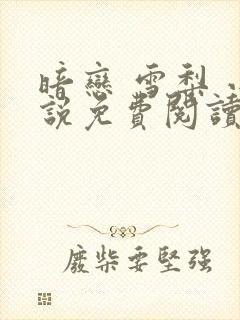 暗戀 雪梨 小
說免費閱讀
廢柴要堅強